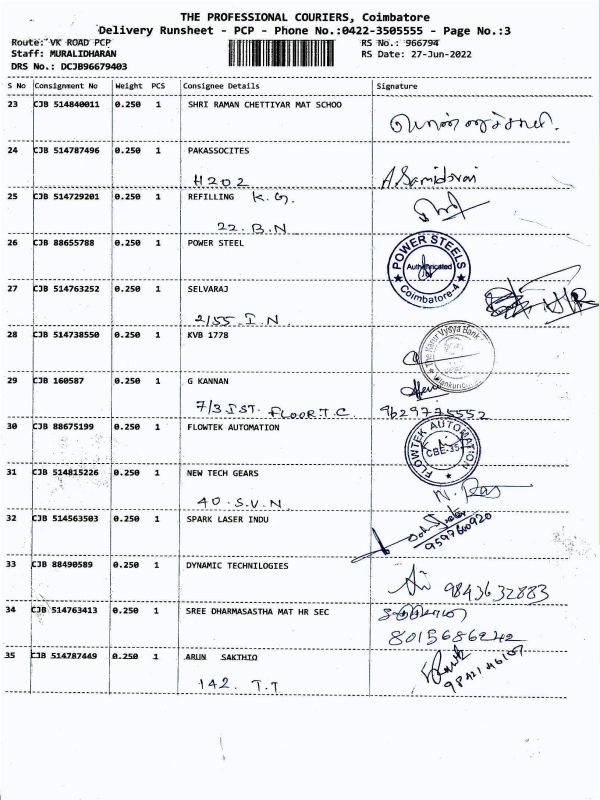 THE PROFESSIONAL COURIERS, Coimbatore
Delivery Runsheet - PCP - Phone No.:0422-3505555 - Page No.:3
Route: VK ROAD PCP
RS No.: 966794
Staff: MURALIDHARAN
RS Date: 27-Jun-2022
DRS No.: DCJB96679403
S No Consignment No Weight PCS Consignee Details Signature
23 CJB 514840011 0.250 1 SHRI RAMAN CHETTIYAR MAT SCHOO
24 CJB 514787496 0.250 1 PAKASSOCITES
H202 A. Samidurai
25 CJB 514729201 0.250 1 REFILLING K.G.
22. B.N
26 CJB 88655788 0.250 1 POWER STEEL
POWER STEELS
Authenticated
Coimbatore-4
27 CJB 514763252 0.250 1 SELVARAJ
2/55. I.N
28 CJB 514738550 0.250 1 KVB 1778
The Karur Vysya Bank
29 CJB 160587 0.250 1 G KANNAN
7/3 IST. FLOOR T.C. 9629775552
30 CJB 88675199 0.250 1 FLOWTEK AUTOMATION
FLOWTEK AUTOMATION
CBE-35
31 CJB 514815226 0.250 1 NEW TECH GEARS
40. S.V.N N. Ras
32 CJB 514563503 0.250 1 SPARK LASER INDU
9597600920
33 CJB 88490589 0.250 1 DYNAMIC TECHNILOGIES
9843632883
34 CJB 514763413 0.250 1 SREE DHARMASASTHA MAT HR SEC
8015686242
35 CJB 514787449 0.250 1 ARUN SAKTHIO
142. T.T